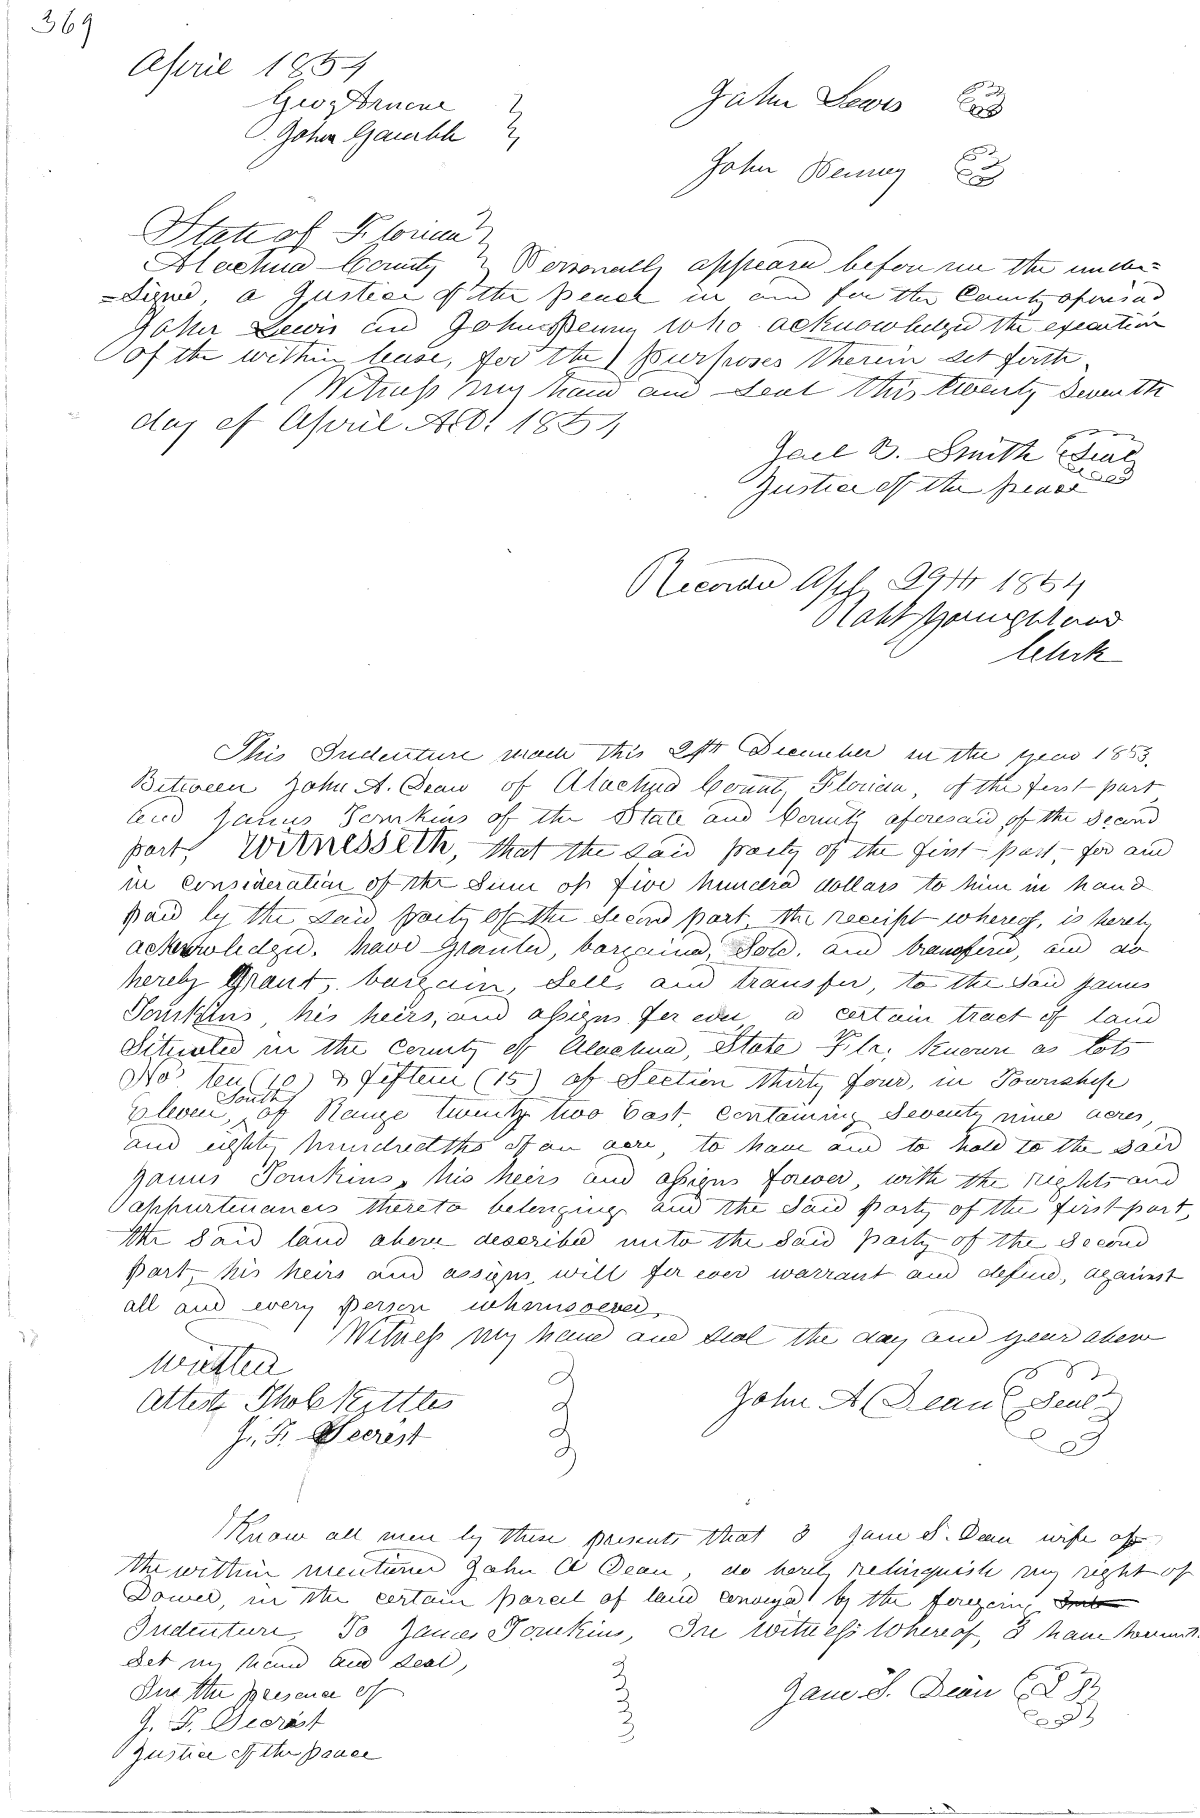 369
April 1854
John Lewis
John Gamble
John Penney
State of Florida
Alachua County Personally appeared before me the under=
=Signed, a Justice of the peace in and for the County aforesaid
John Lewis and John Penny who acknowledged the execution
of the within lease, for the purposes therein set forth
Witness my hand and seal this twenty Seventh
day of April A.D. 1854
B. Smith Seal
Justice of the peace
Recorded Apl 29th 1854
Clerk
This Indenture made this December in the year 1853.
Between John A. Dean of Alachua County Florida, of the first part
and James Tomkins of the State and County aforesaid, of the Second
part, Witnesseth, that the said party of the first part, for and
in consideration of the Sum of five hundred dollars to him in hand
paid by the said party of the Second part, the receipt whereof, is hereby
acknowledged. have Granted, bargained, Sold, and transfered, and do
hereby Grant, bargain, Sell, and transfer, to the Said James
Tomkins, his heirs, and assigns for ever, a certain tract of land
Situated in the County of Alachua, State Fla. Known as lots
No. ten (10) & fifteen (15) of Section thirty four, in Township
Eleven, South of Range twenty two East, containing Seventy nine acres,
and eighty hundredths of an acre, to have and to hold to the Said
James Tomkins, his heirs and assigns forever, with the rights and
appurtenances thereto belonging and the Said party of the first part,
the Said land above described unto the Said party of the Second
part, his heirs and assigns, will for ever warrant and defend, against
all and every person whomsoever,
Witness my hand and seal the day and year above
written
Attest Kettles
J. F. Secrest
John A Dean Seal
Know all men by these presents that I Jane S. Dean wife of
the within mentioned John A Dean, do hereby relinquish my right of
Dower, in the certain parcel of land conveyed by the foregoing
Indenture, To James Tomkins, In witness whereof, I have hereunto
Set my hand and seal,
In the presence of
J. F. Secrest
Justice of the peace
Jane S. Dean